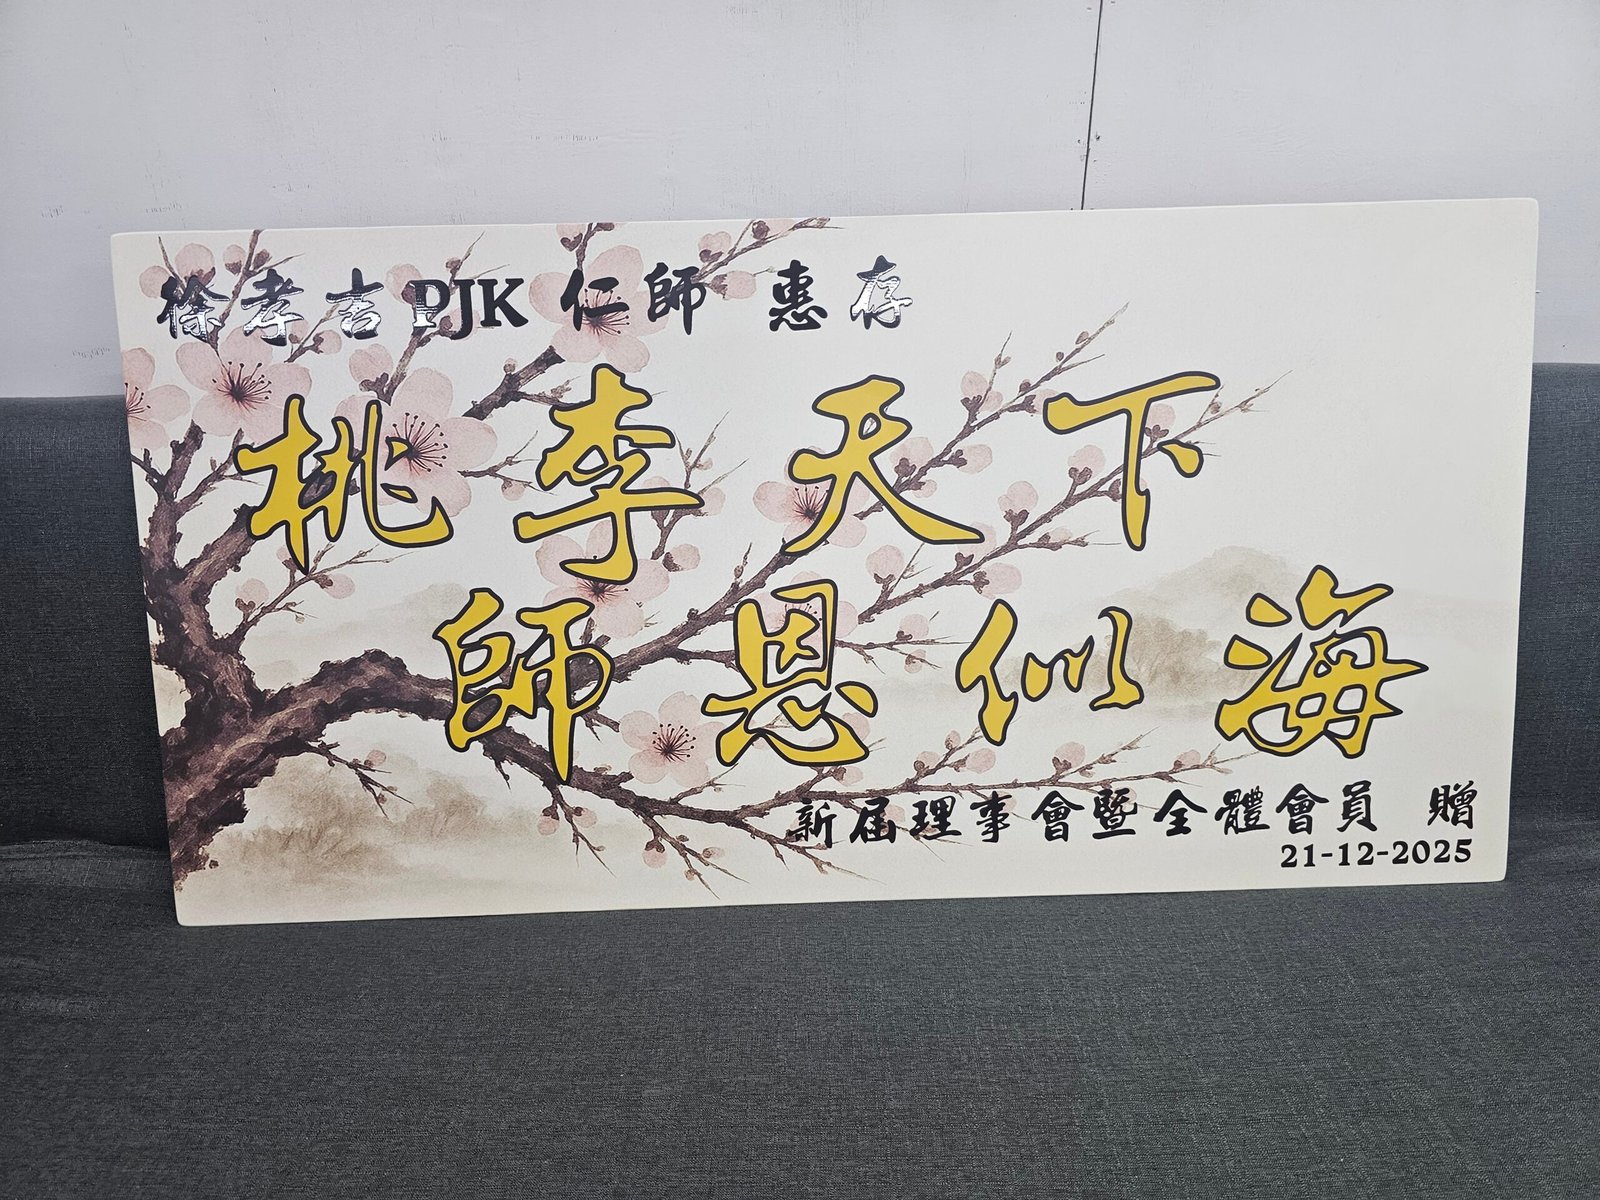 徐孝吉PJK 仁師 惠存
桃李天下
師恩似海
新屆理事會暨全體會員 贈
21-12-2025